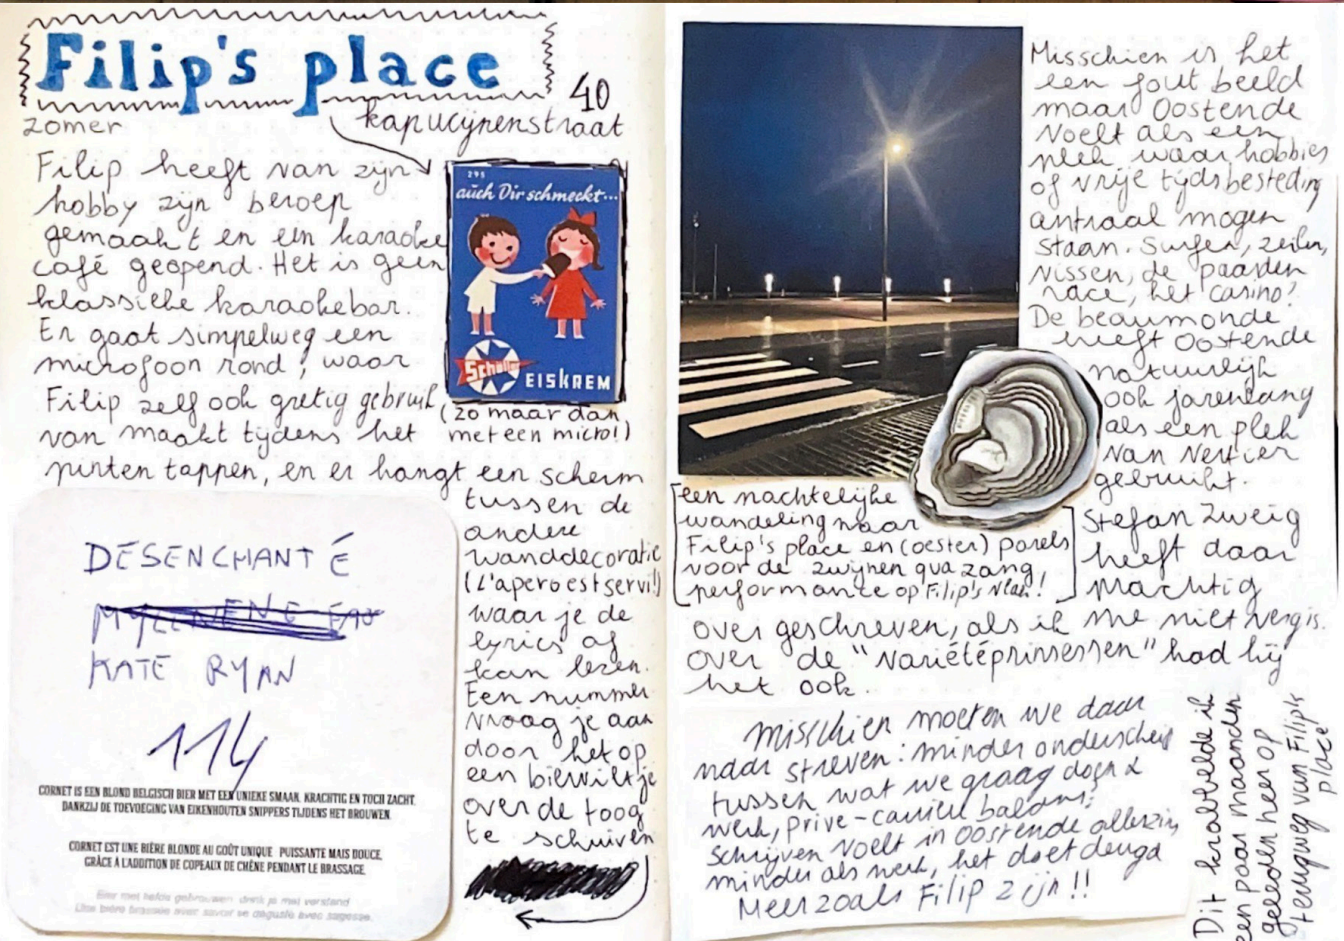 Filip's place
40
kapucijnenstraat
zomer
Filip heeft van zijn
hobby zijn beroep
gemaakt en een karaoke
café geopend. Het is geen
klassieke karaokebar.
Er gaat simpelweg een
microfoon rond, waar
Filip zelf ook gretig gebruik
van maakt tijdens het
pinten tappen, en er hangt een scherm
tussen de
andere
wanddecoratie
(L'apero est servi!)
waar je de
lyrics af
kan lezen.
Een nummer
vraag je aan
door het op
een bierviltje
over de toog
te schuiven
295
auch Dir schmeckt...
Schöller
EISKREM
(zo maar dan
met een micro!)
DÉSENCHANTÉ
KATE RYAN
114
CORNET IS EEN BLOND BELGISCH BIER MET EEN UNIEKE SMAAK, KRACHTIG EN TOCH ZACHT,
DANKZIJ DE TOEVOEGING VAN EIKENHOUTEN SNIPPERS TIJDENS HET BROUWEN.
CORNET EST UNE BIÈRE BLONDE AU GOÛT UNIQUE PUISSANTE MAIS DOUCE,
GRÂCE À L'ADDITION DE COPEAUX DE CHÊNE PENDANT LE BRASSAGE.
Bier met liefde gebrouwen drink je met verstand
Une bière brassée avec savoir se déguste avec sagesse.
Misschien is het
een fout beeld
maar Oostende
voelt als een
plek waar hobbies
of vrije tijdsbesteding
centraal mogen
staan. Surfen, zeilen,
vissen, de paarden
race, het casino?
De beaumonde
heeft Oostende
natuurlijk
ook jarenlang
als een plek
van vertier
gebruikt.
Stefan Zweig
heeft daar
machtig
over geschreven, als ik me niet vergis.
Over de "variétéprinsessen" had hij
het ook.
[een nachtelijke
wandeling naar
Filip's place en (oester) parels
voor de zwijnen qua zang
performance op Filip's vlak!]
misschien moeten we daar
naar streven: minder onderscheid
tussen wat we graag doen &
werk, prive-carrière balans;
schrijven voelt in Oostende alleszins
minder als werk, het doet deugd
Meer zoals Filip zijn!!
Dit krabbelde ik
een paar maanden
geleden neer op
terugweg van Filip's
place